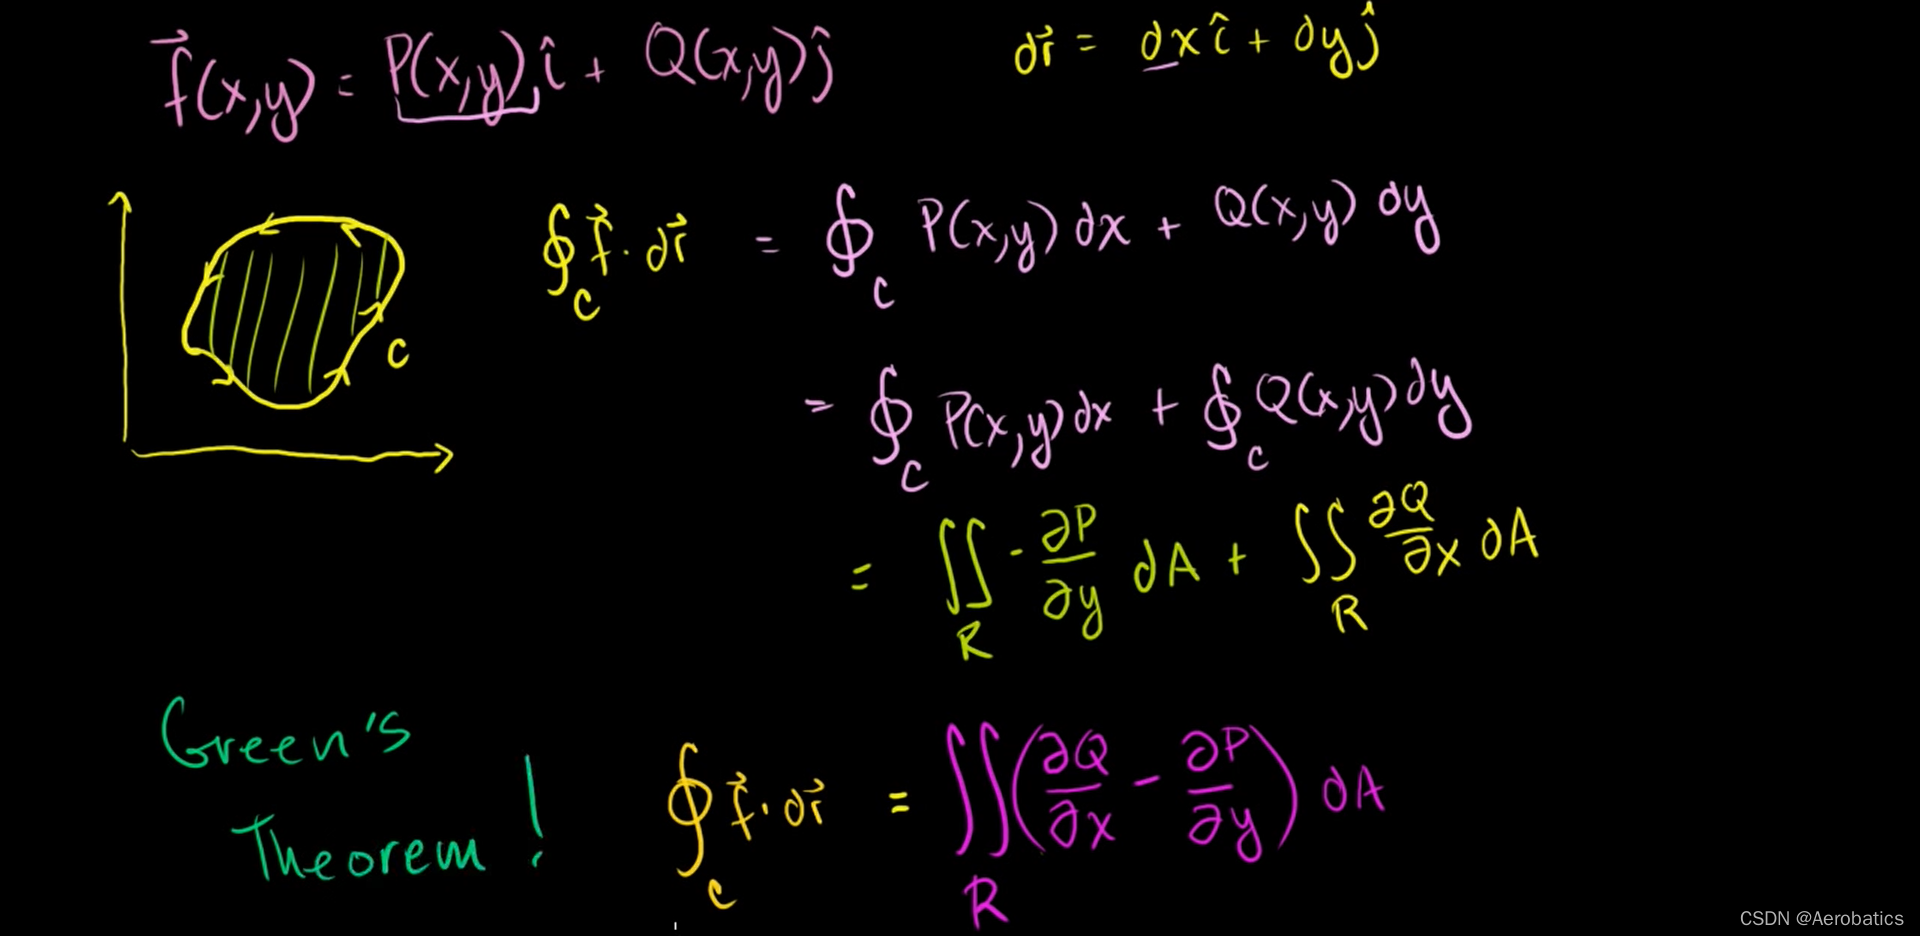 f⃗(x,y) = P(x,y) î + Q(x,y) ĵ
dr⃗ = dx î + dy ĵ
∮_C f⃗ · dr⃗ = ∮_C P(x,y) dx + Q(x,y) dy
C
= ∮_C P(x,y) dx + ∮_C Q(x,y) dy
= ∬_R - ∂P/∂y dA + ∬_R ∂Q/∂x dA
Green's
Theorem!
∮_C f⃗ · dr⃗ = ∬_R (∂Q/∂x - ∂P/∂y) dA
CSDN @Aerobatics